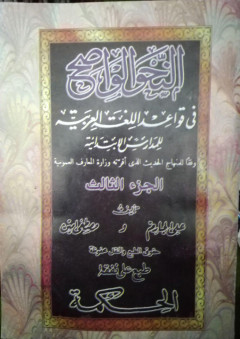 النحو الواضح
في قواعد اللغة العربية
للمدارس الابتدائية
وفقا للمنهاج الحديث الذى أقرته وزارة المعارف العمومية
الجزء الثالث
تأليف
على الجارم و مصطفى أمين
حقوق الطبع والنقل محفوظة
طبع على نفقة
الحكمة